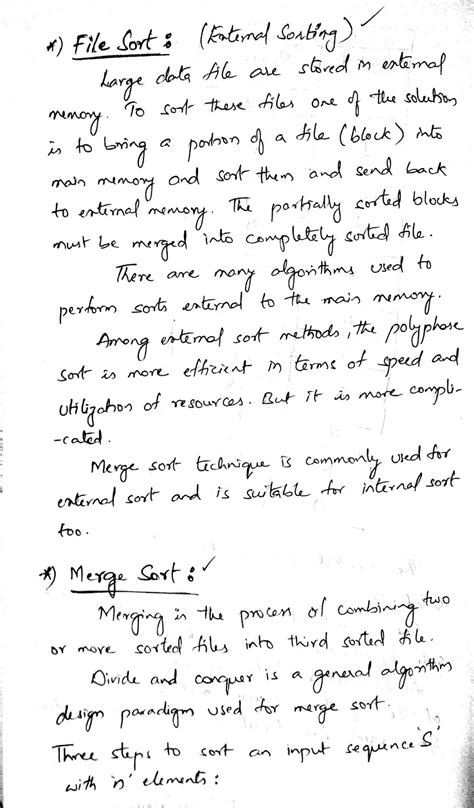 *) File Sort : (External Sorting) ✓
Large data file are stored in external
memory. To sort these files one of the solution
is to bring a portion of a file (block) into
main memory and sort them and send back
to external memory. The partially sorted blocks
must be merged into completely sorted file.
There are many algorithms used to
perform sorts external to the main memory.
Among external sort methods, the polyphase
sort is more efficient in terms of speed and
utilization of resources. But it is more compli-
-cated.
Merge sort technique is commonly used for
external sort and is suitable for internal sort
too.
*) Merge Sort : ✓
Merging is the process of combining two
or more sorted files into third sorted file.
Divide and conquer is a general algorithm
design paradigm used for merge sort.
Three steps to sort an input sequence 'S'
with 'n' elements :